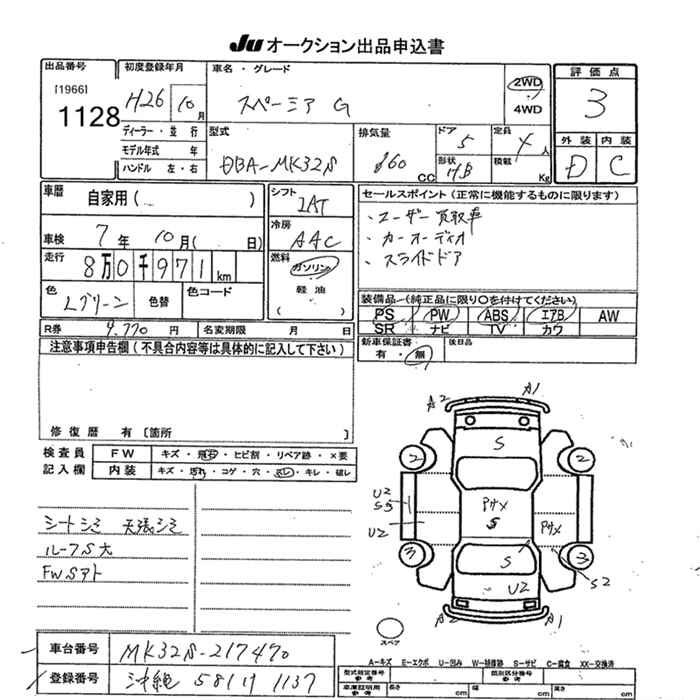 JU オークション出品申込書
出品番号
[1966]
1128
初度登録年月
H26 10月
車名・グレード
スペーシア G
2WD
4WD
評価点
3
外装 内装
D C
ディーラー・並行
モデル年式 年
ハンドル 左・右
型式
DBA-MK32S
排気量
660 CC
ドア
5
形状
HB
定員
4人
積載
Kg
車歴
自家用( )
車検
7年 10月( 日)
走行
8万0千971 km
色
Lグリーン
色替
色コード
シフト
IAT
冷房
AAC
燃料
ガソリン
軽油
( )
セールスポイント(正常に機能するものに限ります)
・ユーザー買取車
・カーオーディオ
・スライドドア
装備品(純正品に限り○を付けてください)
PS PW ABS エアB AW
SR ナビ TV カワ
R券 9,770 円 名変期限 月 日
新車保証書
有・無
後日品
注意事項申告欄(不具合内容等は具体的に記入して下さい)
修復歴 有〔箇所 〕
検査員
記入欄
FW キズ・飛石・ヒビ割・リペア跡・×要
内装 キズ・汚れ・コゲ・穴・スレ・キレ・破レ
シートシミ 天張シミ
ルーフS大
FWSアト
A2 A1
S
2 2
U2
S3
U2
Pサメ
S
Pサメ
3 3
S
U2
S2
A2 A1
スペア
車台番号 MK32S-217470
登録番号 沖縄 581 け 1137
A-キズ E-エクボ U-凹み W-補修跡 S-サビ C-腐食 XX-交換済
型式指定番号
参考
類別区分番号
参考
車庫証明用
参考
長さ cm 幅 cm 高さ cm